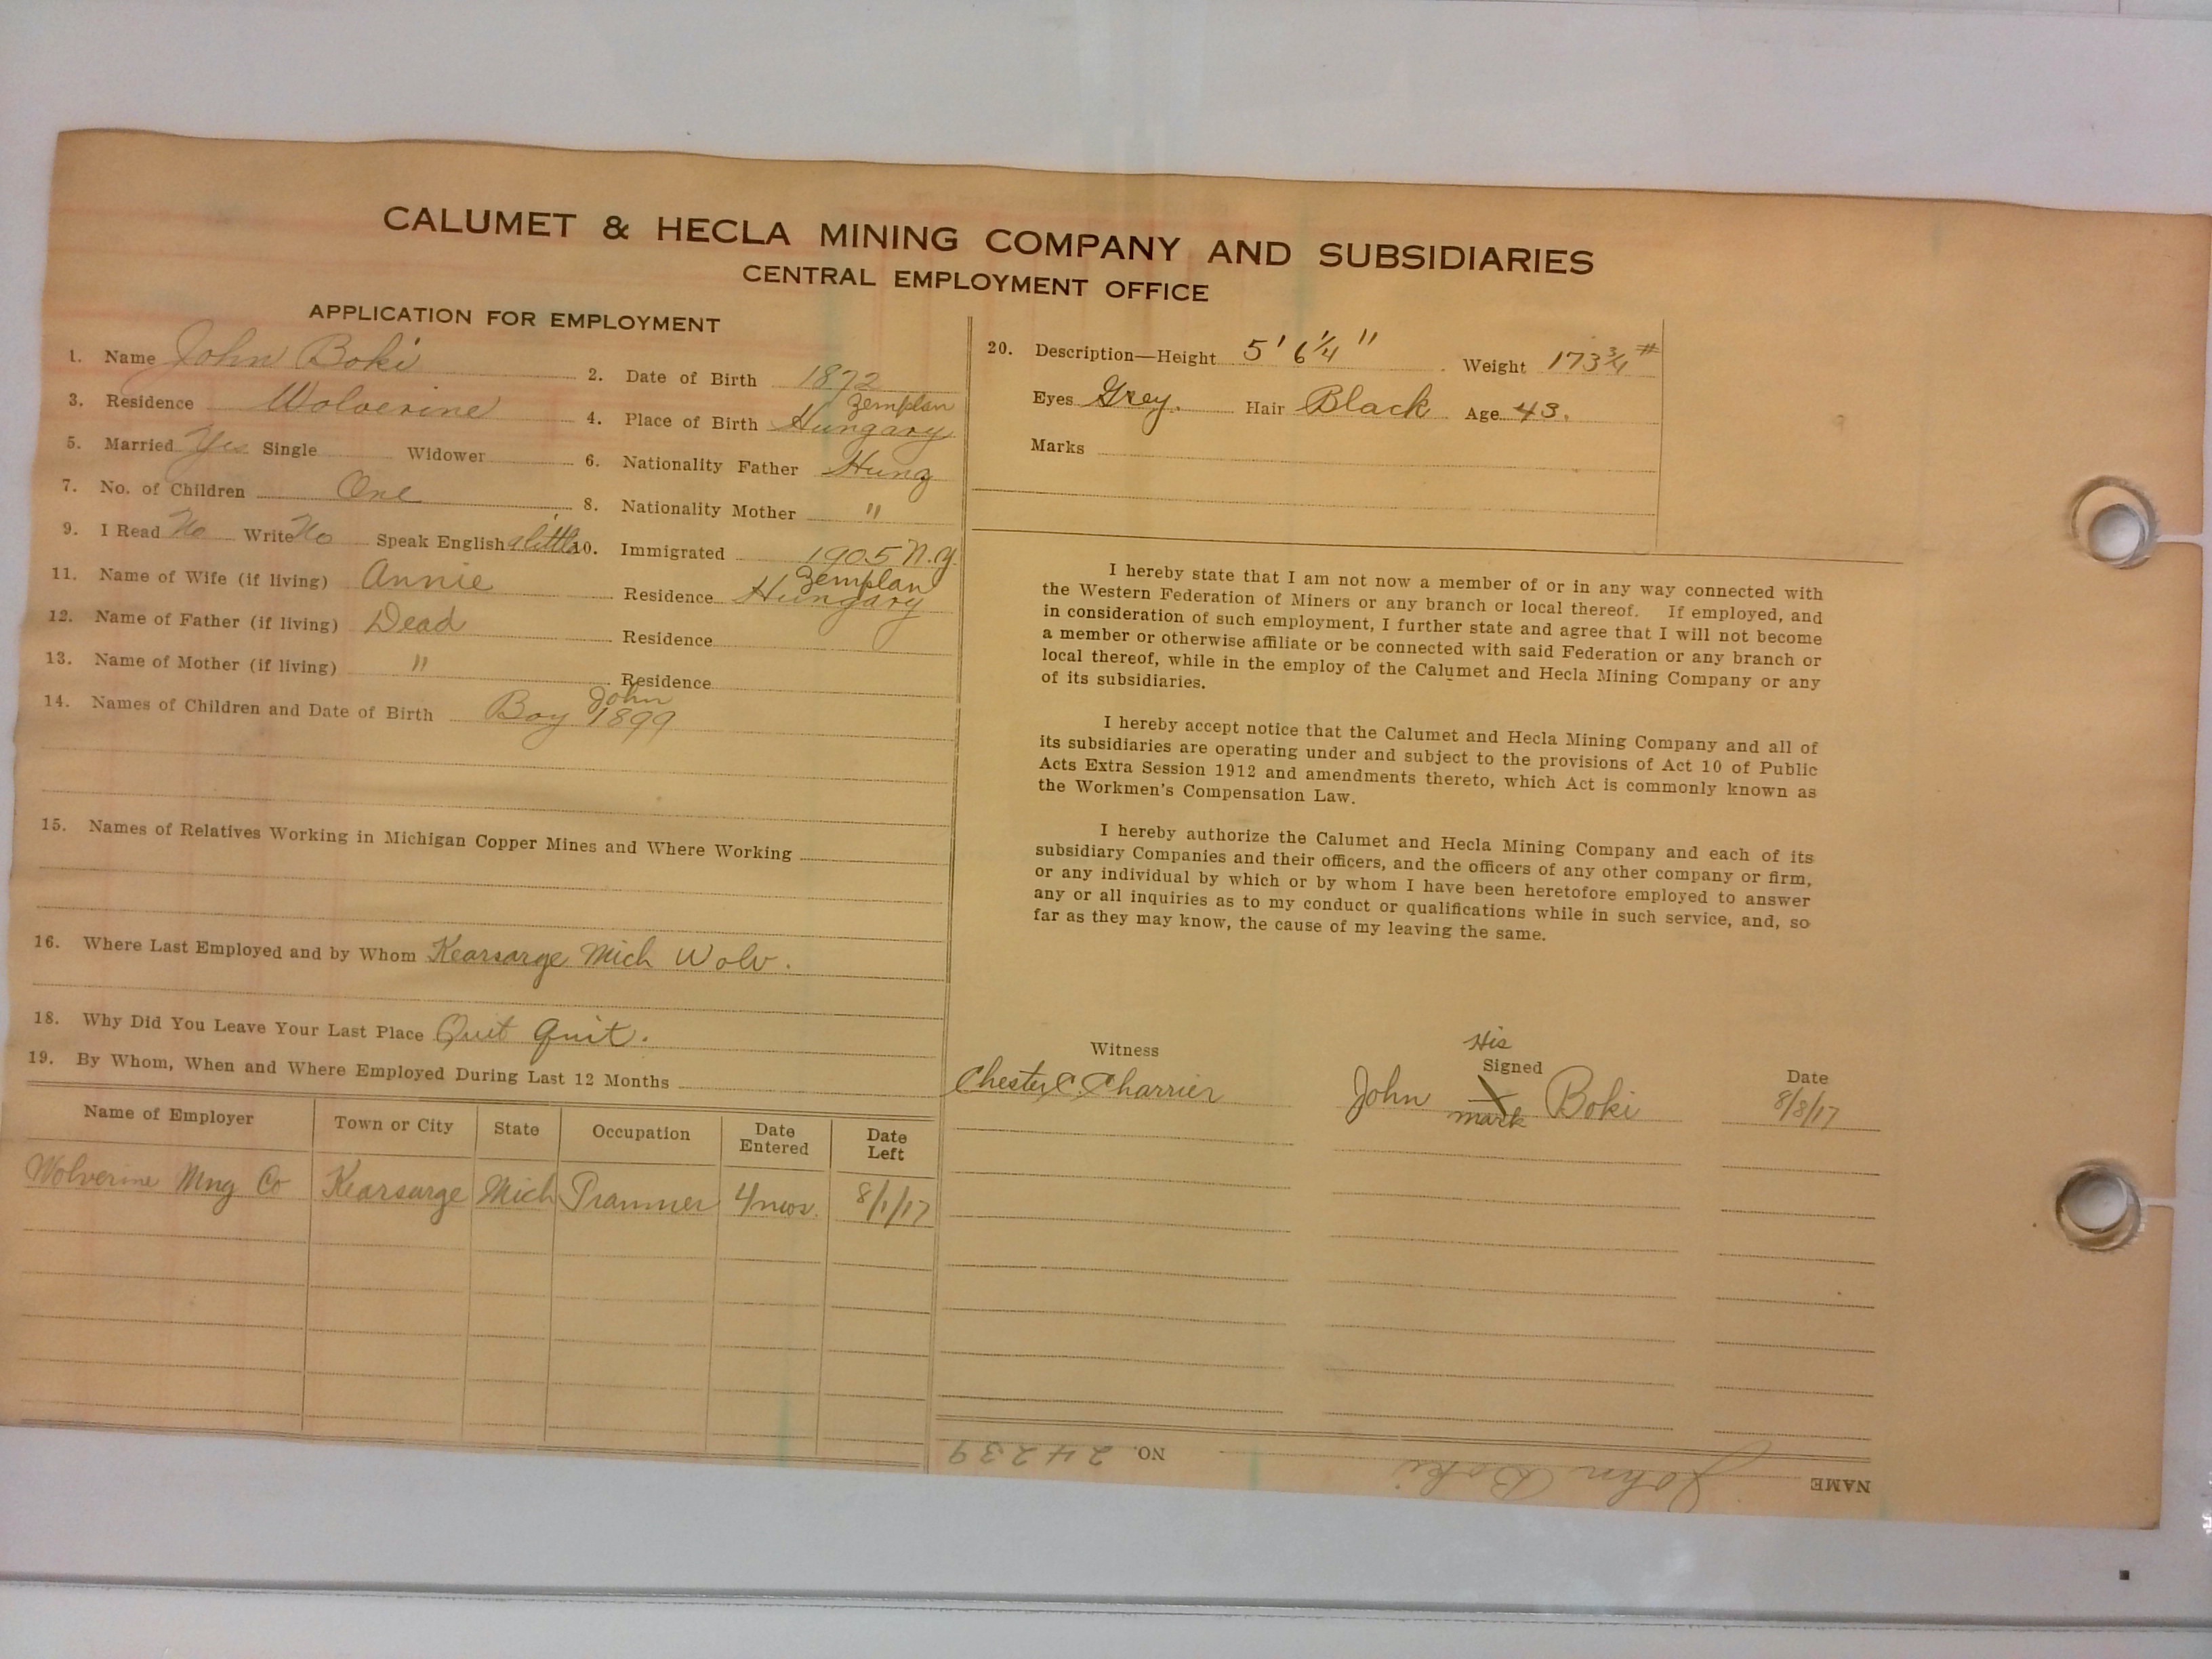 CALUMET & HECLA MINING COMPANY AND SUBSIDIARIES
CENTRAL EMPLOYMENT OFFICE
APPLICATION FOR EMPLOYMENT
1. Name John Boki 2. Date of Birth 1872
3. Residence Wolverine 4. Place of Birth Zemplan Hungary
5. Married Yes Single Widower 6. Nationality Father Hung
7. No. of Children One 8. Nationality Mother "
9. I Read No Write No Speak English a little 10. Immigrated 1905 N.Y.
11. Name of Wife (if living) Annie Residence Zemplan Hungary
12. Name of Father (if living) Dead Residence
13. Name of Mother (if living) " Residence
14. Names of Children and Date of Birth Boy John 1899
15. Names of Relatives Working in Michigan Copper Mines and Where Working
16. Where Last Employed and by Whom Kearsarge Mich Wolv.
18. Why Did You Leave Your Last Place Quit Quit.
19. By Whom, When and Where Employed During Last 12 Months
Name of Employer Town or City State Occupation Date Entered Date Left
Wolverine Mng Co Kearsarge Mich Trammer 4 mos. 8/1/17
20. Description—Height 5' 6 1/4" Weight 173 3/4 #
Eyes Grey. Hair Black Age 43.
Marks
I hereby state that I am not now a member of or in any way connected with
the Western Federation of Miners or any branch or local thereof. If employed, and
in consideration of such employment, I further state and agree that I will not become
a member or otherwise affiliate or be connected with said Federation or any branch or
local thereof, while in the employ of the Calumet and Hecla Mining Company or any
of its subsidiaries.
I hereby accept notice that the Calumet and Hecla Mining Company and all of
its subsidiaries are operating under and subject to the provisions of Act 10 of Public
Acts Extra Session 1912 and amendments thereto, which Act is commonly known as
the Workmen's Compensation Law.
I hereby authorize the Calumet and Hecla Mining Company and each of its
subsidiary Companies and their officers, and the officers of any other company or firm,
or any individual by which or by whom I have been heretofore employed to answer
any or all inquiries as to my conduct or qualifications while in such service, and, so
far as they may know, the cause of my leaving the same.
Witness His Signed Date
Chester C. Charrier John X mark Boki 8/8/17
NAME John Boki NO. 24239